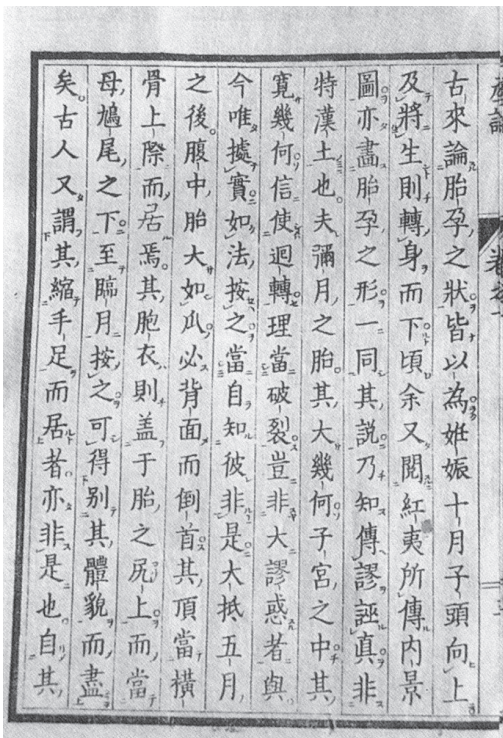 古來論胎孕之狀皆以為姙娠十月子頭向上
及將生則轉身而下頃余又閱紅夷所傳内景
圖亦畵胎孕之形一同其說乃知傳謬誣真非
特漢土也夫彌月之胎其大幾何子宮之中其
寛幾何信使迴轉理當破裂豈非大謬惑者與
今唯據實如法按之當自知彼非是大抵五月
之後腹中胎大如瓜必背面而倒首其頂當橫
骨上際而居焉其胞衣則盖于胎之尻上而當
母鳩尾之下至臨月按之可得别其體貌而盡
矣古人又謂其縮手足而居者亦非是也自其